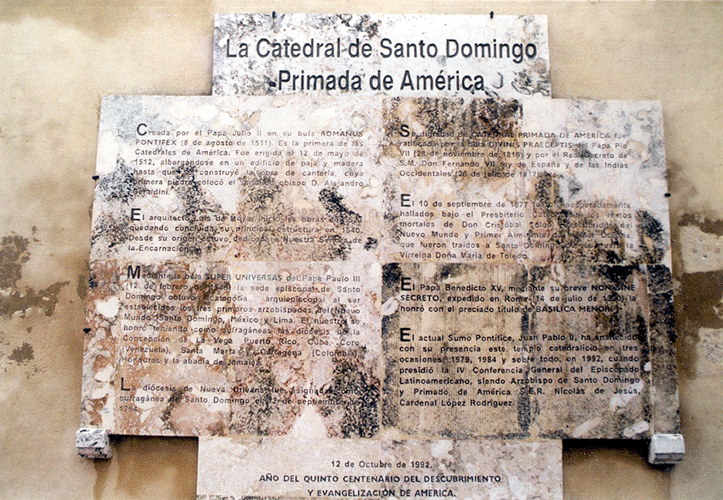 La Catedral de Santo Domingo
Primada de América
Creada por el Papa Julio II en su bula ROMANUS
PONTIFEX (8 de agosto de 1511). Es la primera de las
Catedrales de América. Fue erigida el 12 de mayo de
1512, albergándose en un edificio de paja y madera
hasta que se construyó la obra de cantería, cuya
primera piedra colocó el obispo D. Alejandro
Geraldini.
El arquitecto Luis de Moya inició las obras
quedando concluida su principal estructura en 1540.
Desde su origen estuvo dedicada a Nuestra Señora de
la Encarnación.
Mediante la bula SUPER UNIVERSAS del Papa Paulo III
(12 de febrero de la sede episcopal de Santo
Domingo obtuvo categoría arquiepiscopal al ser
establecidos los tres primeros arzobispados del Nuevo
Mundo: Santo Domingo, México y Lima. El nuestro se
honró teniendo como sufragáneas las diócesis de la
Concepción de La Vega, Puerto Rico, Cuba, Coro
(Venezuela), Santa Marta y Cartagena (Colombia),
Honduras y la abadía de Jamaica.
La diócesis de Nueva Orleans fue asignada como
sufragánea de Santo Domingo el 12 de septiembre de
1794.
Su dignidad de CATEDRAL PRIMADA DE AMERICA fue
ratificada por la bula DIVINIS PRAECEPTIS del Papa Pío
VII (28 de noviembre de 1816) y por el Real Decreto de
S.M. Don Fernando VII, rey de España y de las Indias
Occidentales (26 de julio de 1817).
El 10 de septiembre de 1877 fueron inesperadamente
hallados bajo el Presbiterio los restos
mortales de Don Cristóbal Colón, Descubridor del
Nuevo Mundo y Primer Almirante
que fueron traídos a Santo Domingo por la
Virreina Doña María de Toledo.
El Papa Benedicto XV, mediante su breve NON SINE
SECRETO, expedido en Roma (14 de julio de 1920) la
honró con el preciado título de BASILICA MENOR.
El actual Sumo Pontífice, Juan Pablo II, ha enaltecido
con su presencia este templo catedralicio en tres
ocasiones: 1979, 1984 y sobre todo, en 1992, cuando
presidió la IV Conferencia General del Episcopado
Latinoamericano, siendo Arzobispo de Santo Domingo
y Primado de América S.E.R. Nicolás de Jesús,
Cardenal López Rodríguez.
12 de Octubre de 1992,
AÑO DEL QUINTO CENTENARIO DEL DESCUBRIMIENTO
Y EVANGELIZACION DE AMERICA.